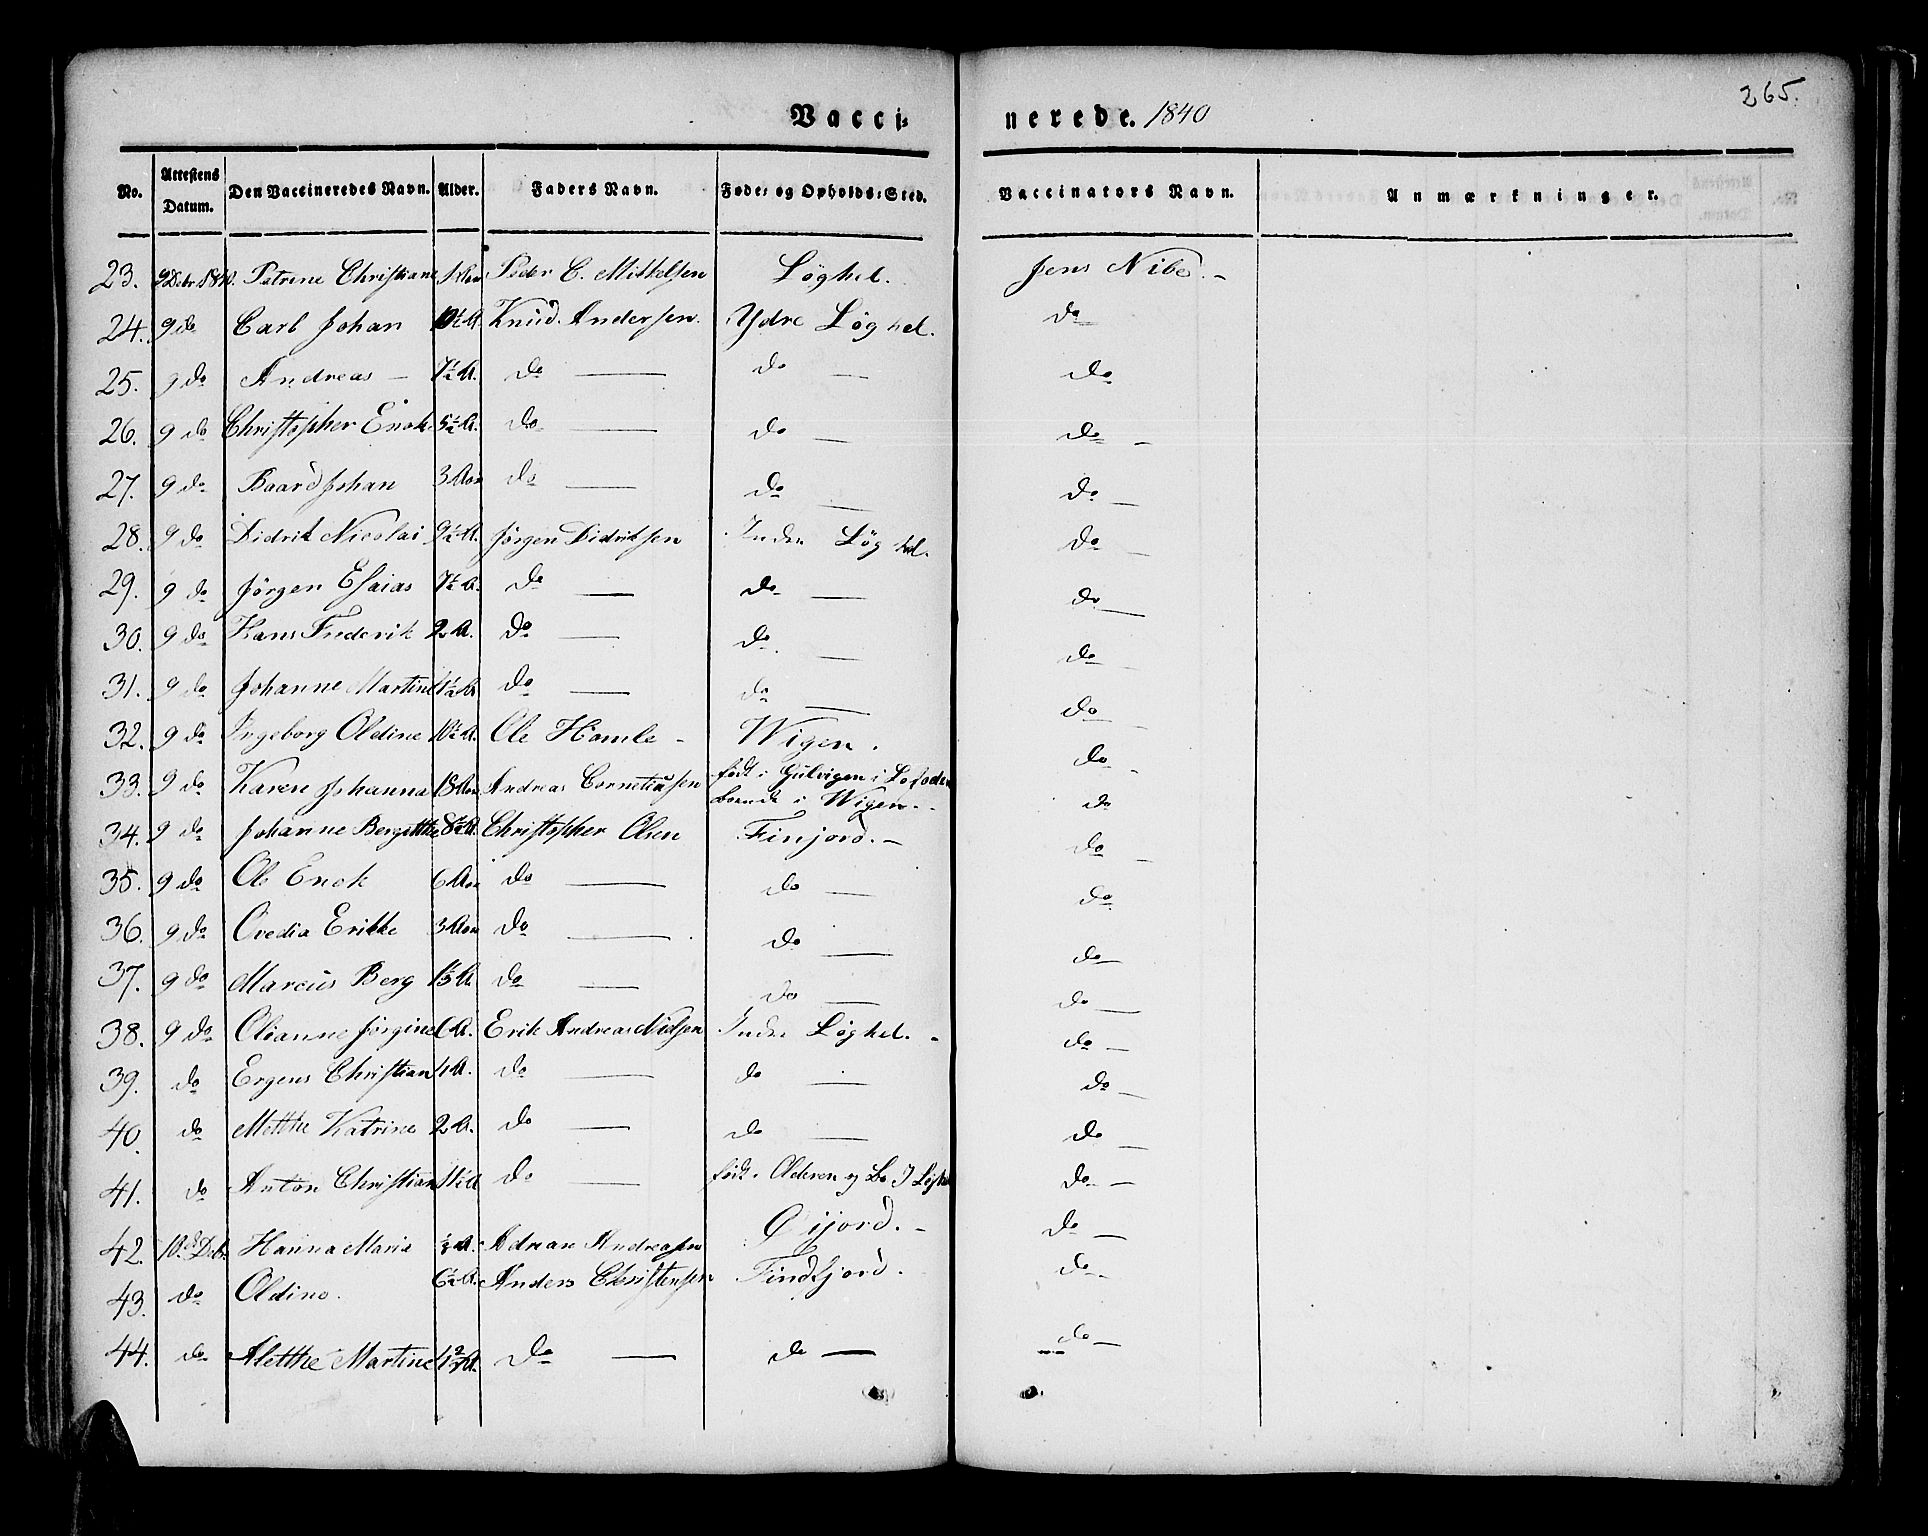 265.
Vacci- nerede. 1840
No. Attestens Datum. Den Vaccineredes Navn. Alder. Faders Navn. Føde- og Opholds-Sted. Vaccinators Navn. Anmærkninger.
23. 9 Debr. 1840. Petrine Christiane 1 Aar Peder C. Mikkelsen Løghel. Jens Nibe. -
24. 9 do Carl Johan 10½ A. Knud Andersen. Ydre Løghel. do
25. 9 do Andreas - 7½ A. do — do — do
26. 9 do Christopher Enok 5½ A. do — do — do -
27. 9 do Baard Johan 3 Aar do — do — do —
28. 9 do Didrik Nicolai 9½ A. Jørgen Didriksen Indre Løghel. do —
29. 9 do Jørgen Esaias 7½ A. do — do — do —
30. 9 do Hans Frederik 2 A. do — do. — do -
31. 9 do Johanne Martine 1½ A. do — do — do -
32. 9 do Ingeborg Oldine 10½ A. Ole Hamle - Wigen. do -
33. 9 do Karen Johanna 18 Aar Andreas Corneliusen født i Gulvigen i Lofoden
boende i Wigen. - do
34. 9 do Johanne Bergitthe 8½ A. Christopher Olsen Finjord. - do -
35. 9 do Ole Enok 6 Aar do — do — do
36. 9 do Ovedia Erikke 3 Aar do — do — do —
37. 9 do Marcus Berg do — do — do —
38. 9 do Olianne Jørgine 6 A. Erik Andreas Nilsen Indre Løghel. - do —
39. do Ergens Christian 4 A. do — do — do —
40. do Metthe Katrine 2 A. do — do — do —
41. do Anton Christian do — født i Olderen og Bo I Løghel do —
42. 10. Debr. Hanna Maria Adrean Andreasen Øijord. - do —
43. do Oldine. 6½ A. Anders Christensen Findfjord. do -
44. do Aletthe Martine do — do — do —